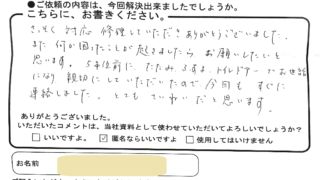 ●ご依頼の内容は、今回解決出来ましたでしょうか。
こちらに、お書きください。
さっそく対応修理していただきありがとうございました。
また何か困ったことが起きましたらお願いしたいと
思います。5年位前に、たたみ、ふすま、トイレドアーのお世話
になり親切にしていただいたので今回もすぐに
連絡しました。とてもていねいだと思います。
ありがとうございました。
いただいたコメントは、当社資料として使わせていただいてよろしいでしょうか？
□いいですよ。 ☑匿名ならいいですよ □使用してはいけません
お名前